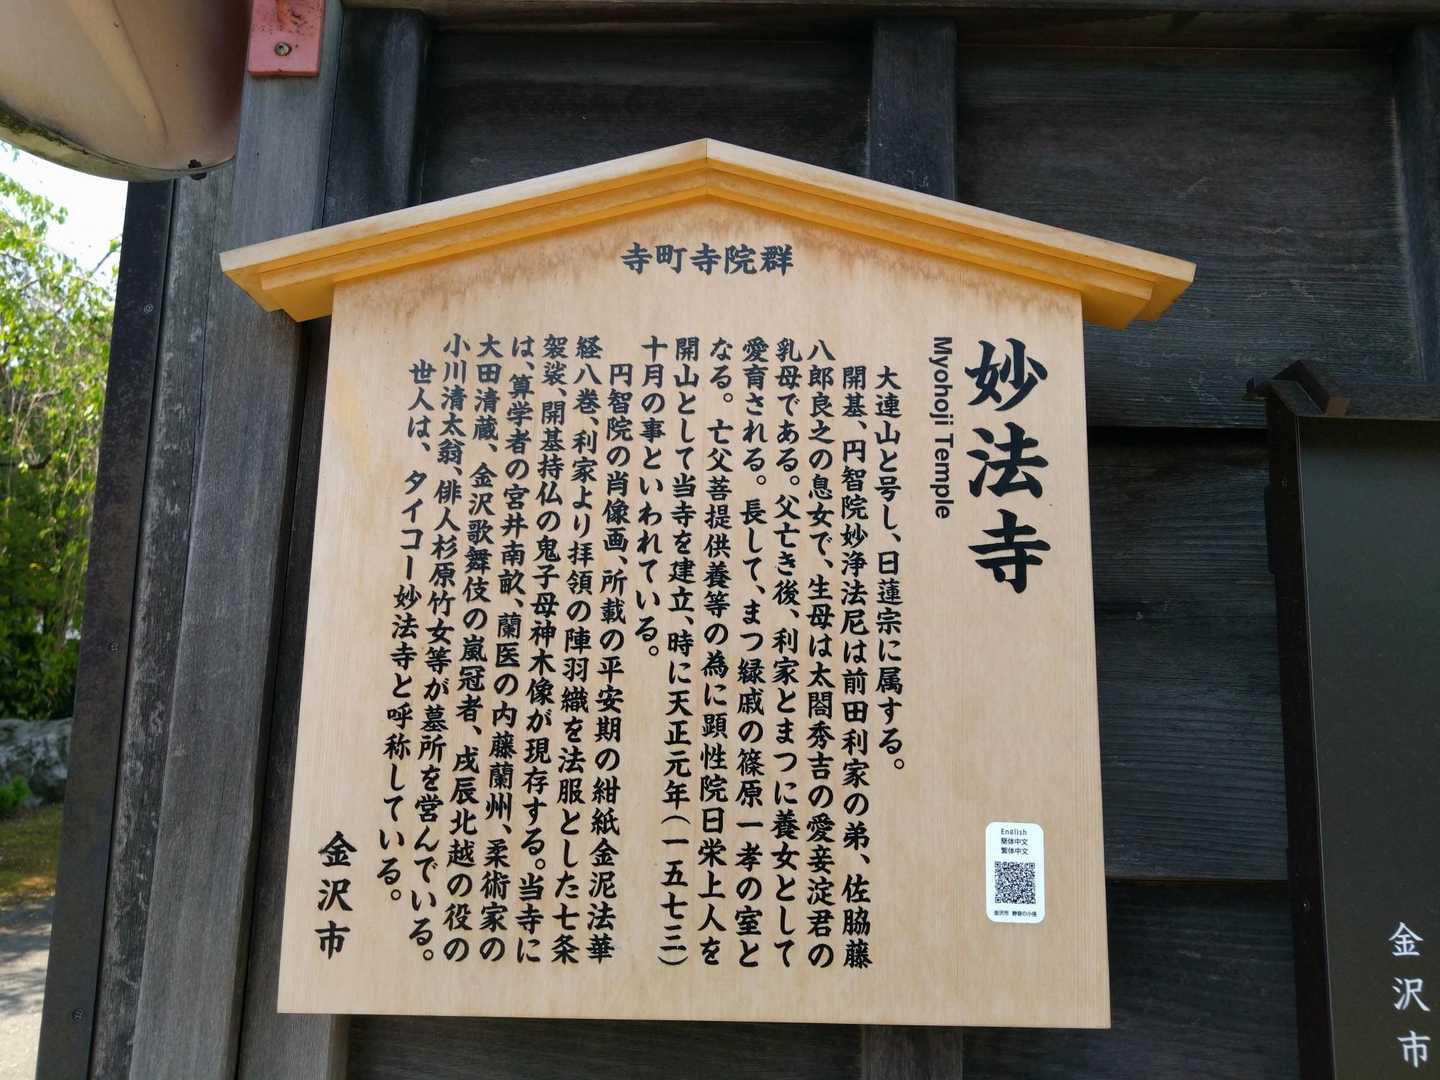 寺町寺院群
妙法寺
Myohoji Temple
大連山と号し、日蓮宗に属する。
開基、円智院妙浄法尼は前田利家の弟、佐脇藤
八郎良之の息女で、生母は太閤秀吉の愛妾淀君の
乳母である。父亡き後、利家とまつに養女として
愛育される。長して、まつ縁戚の篠原一孝の室と
なる。亡父菩提供養等の為に顕性院日栄上人を
開山として当寺を建立、時に天正元年(一五七三)
十月の事といわれている。
円智院の肖像画、所載の平安期の紺紙金泥法華
経八巻、利家より拝領の陣羽織を法服とした七条
袈裟、開基持仏の鬼子母神木像が現存する。当寺に
は、算学者の宮井南畝、蘭医の内藤蘭州、柔術家の
大田清蔵、金沢歌舞伎の嵐冠者、戌辰北越の役の
小川清太翁、俳人杉原竹女等が墓所を営んでいる。
世人は、タイコー妙法寺と呼称している。
金沢市
English
簡体中文
繁体中文
金沢市 静音の小径
金沢市